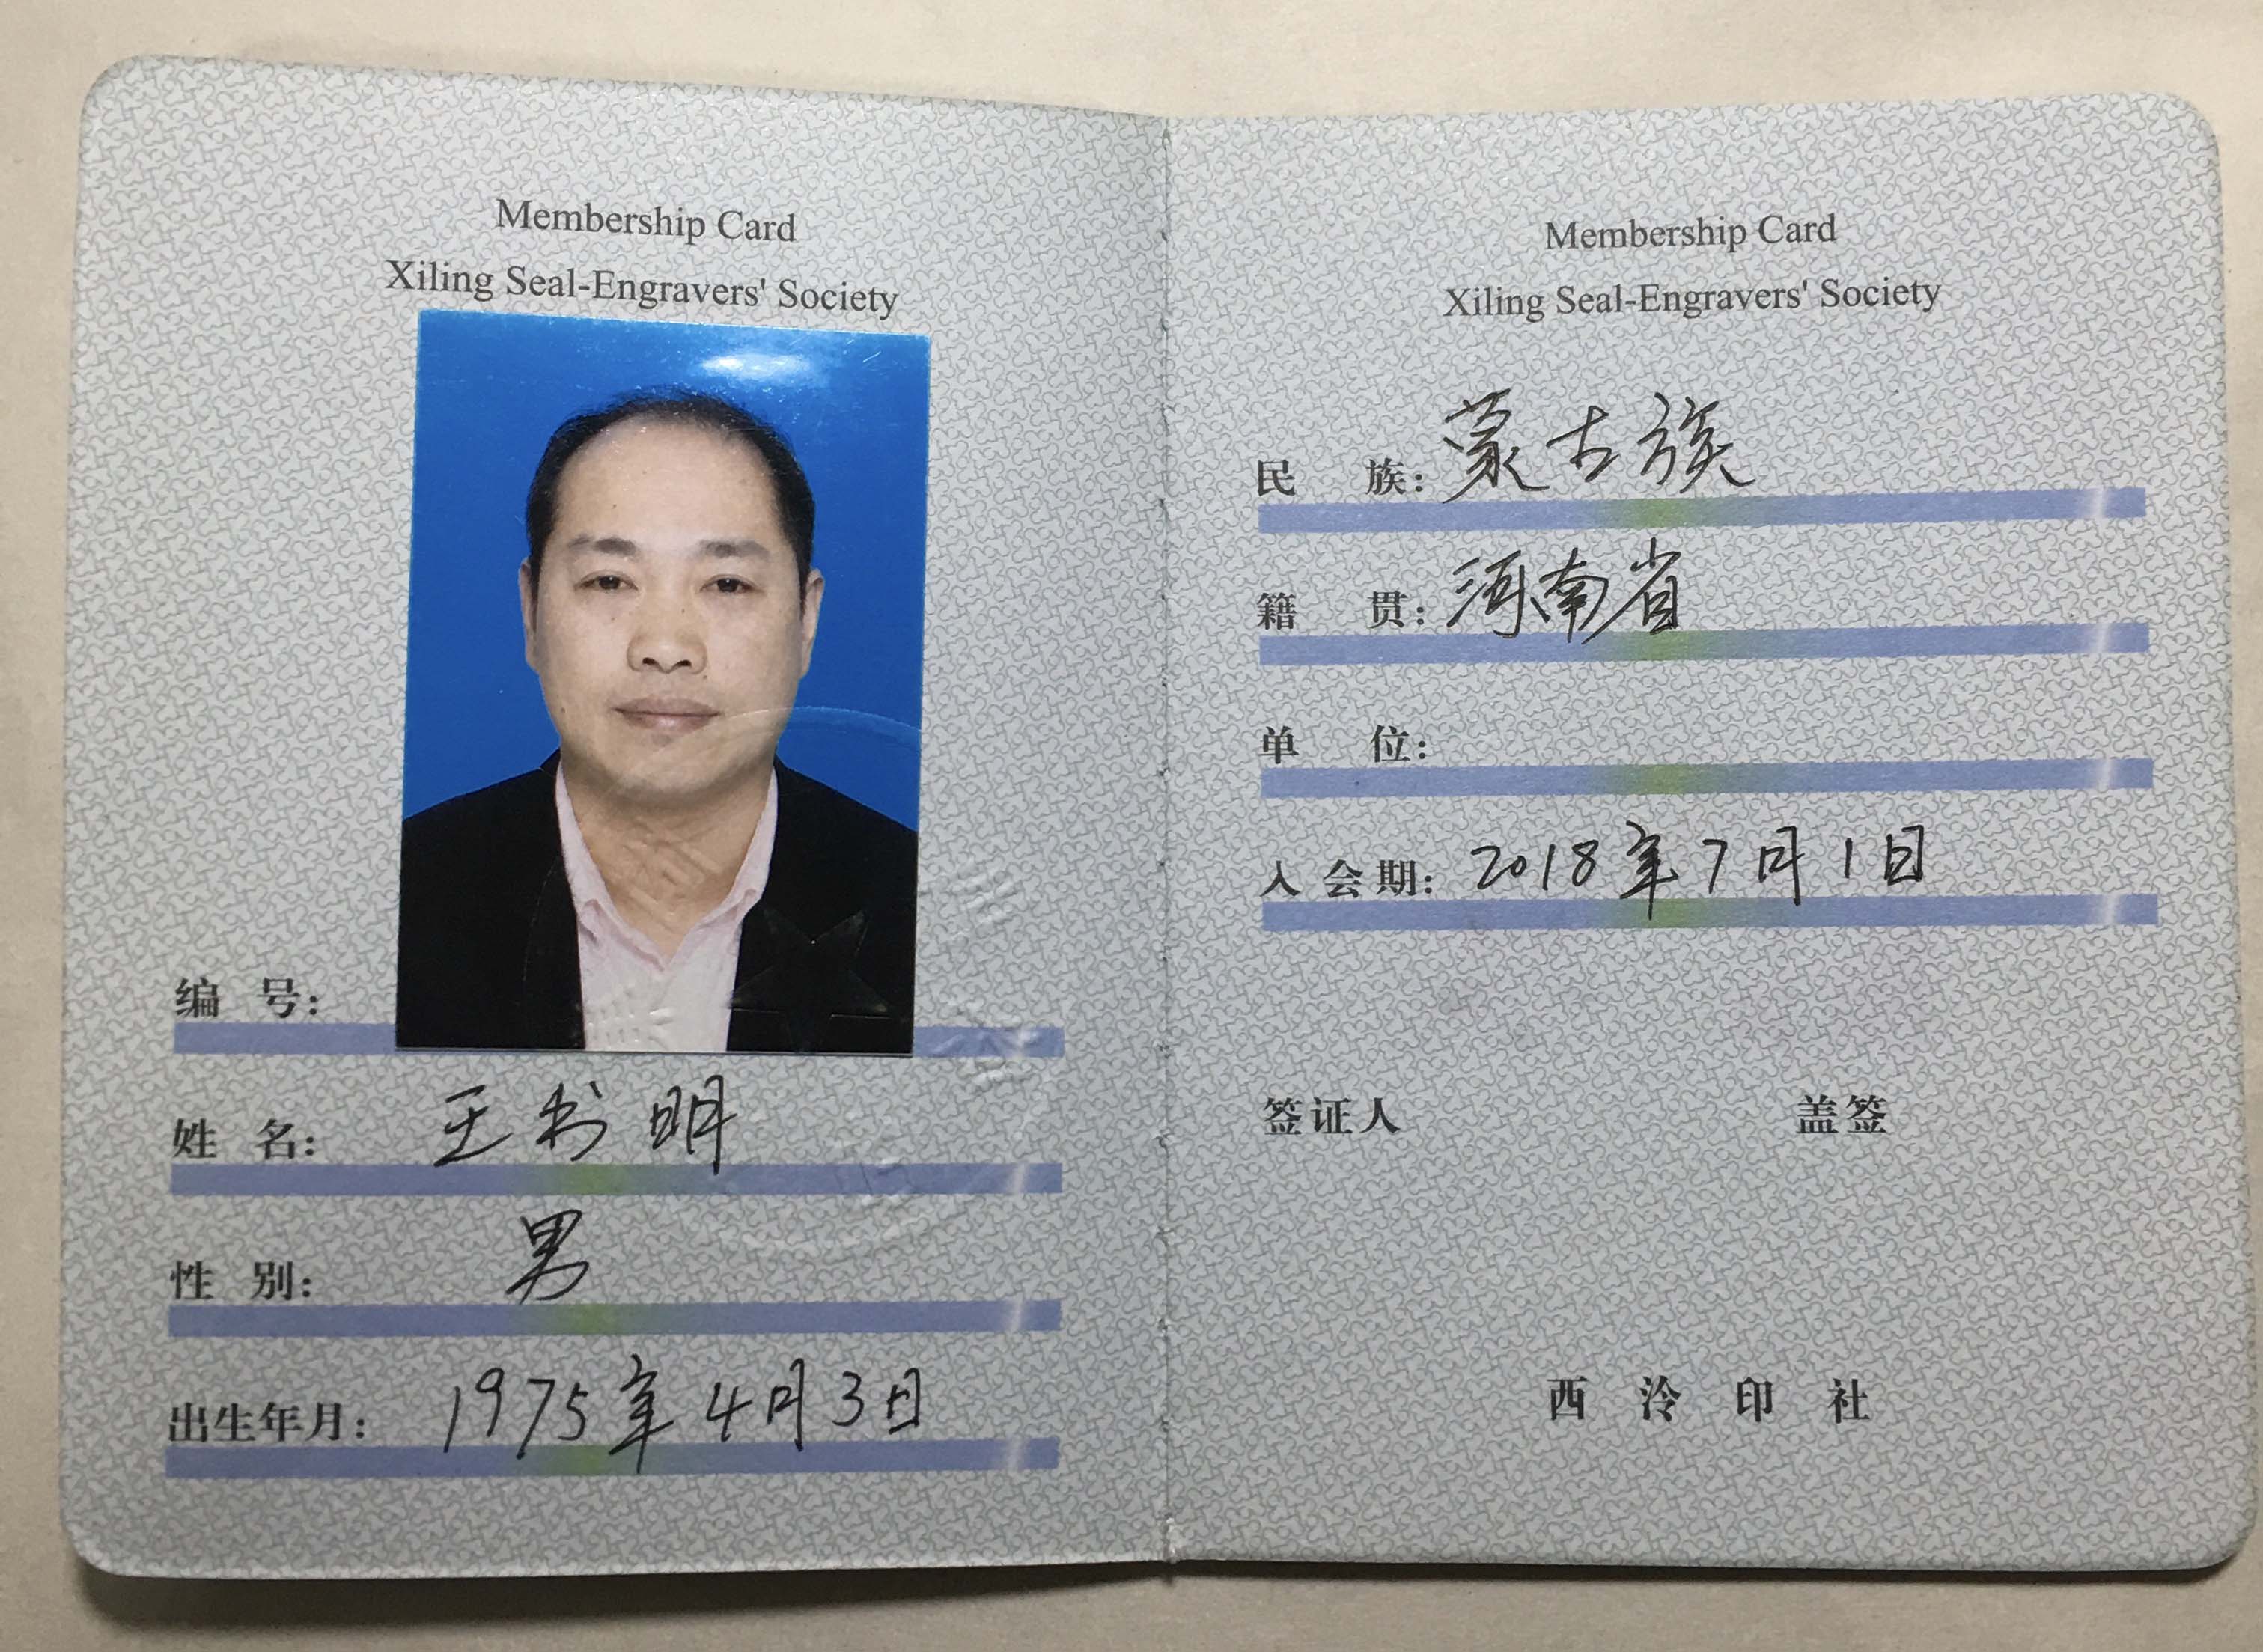 Membership Card
Xiling Seal-Engravers' Society
编 号:
姓 名: 王书明
性 别: 男
出生年月: 1975年4月3日
Membership Card
Xiling Seal-Engravers' Society
民 族: 蒙古族
籍 贯: 河南省
单 位:
入会期: 2018年7月1日
签证人 盖签
西泠印社